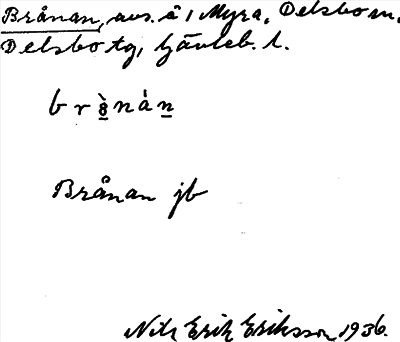 Brånan, avs. å i Myra, Delsbo sn,
Delsbo tg, Gävleb. l.
br8̠̀nánn̠
Brånan jb
Nils Erik Eriksson 1936.